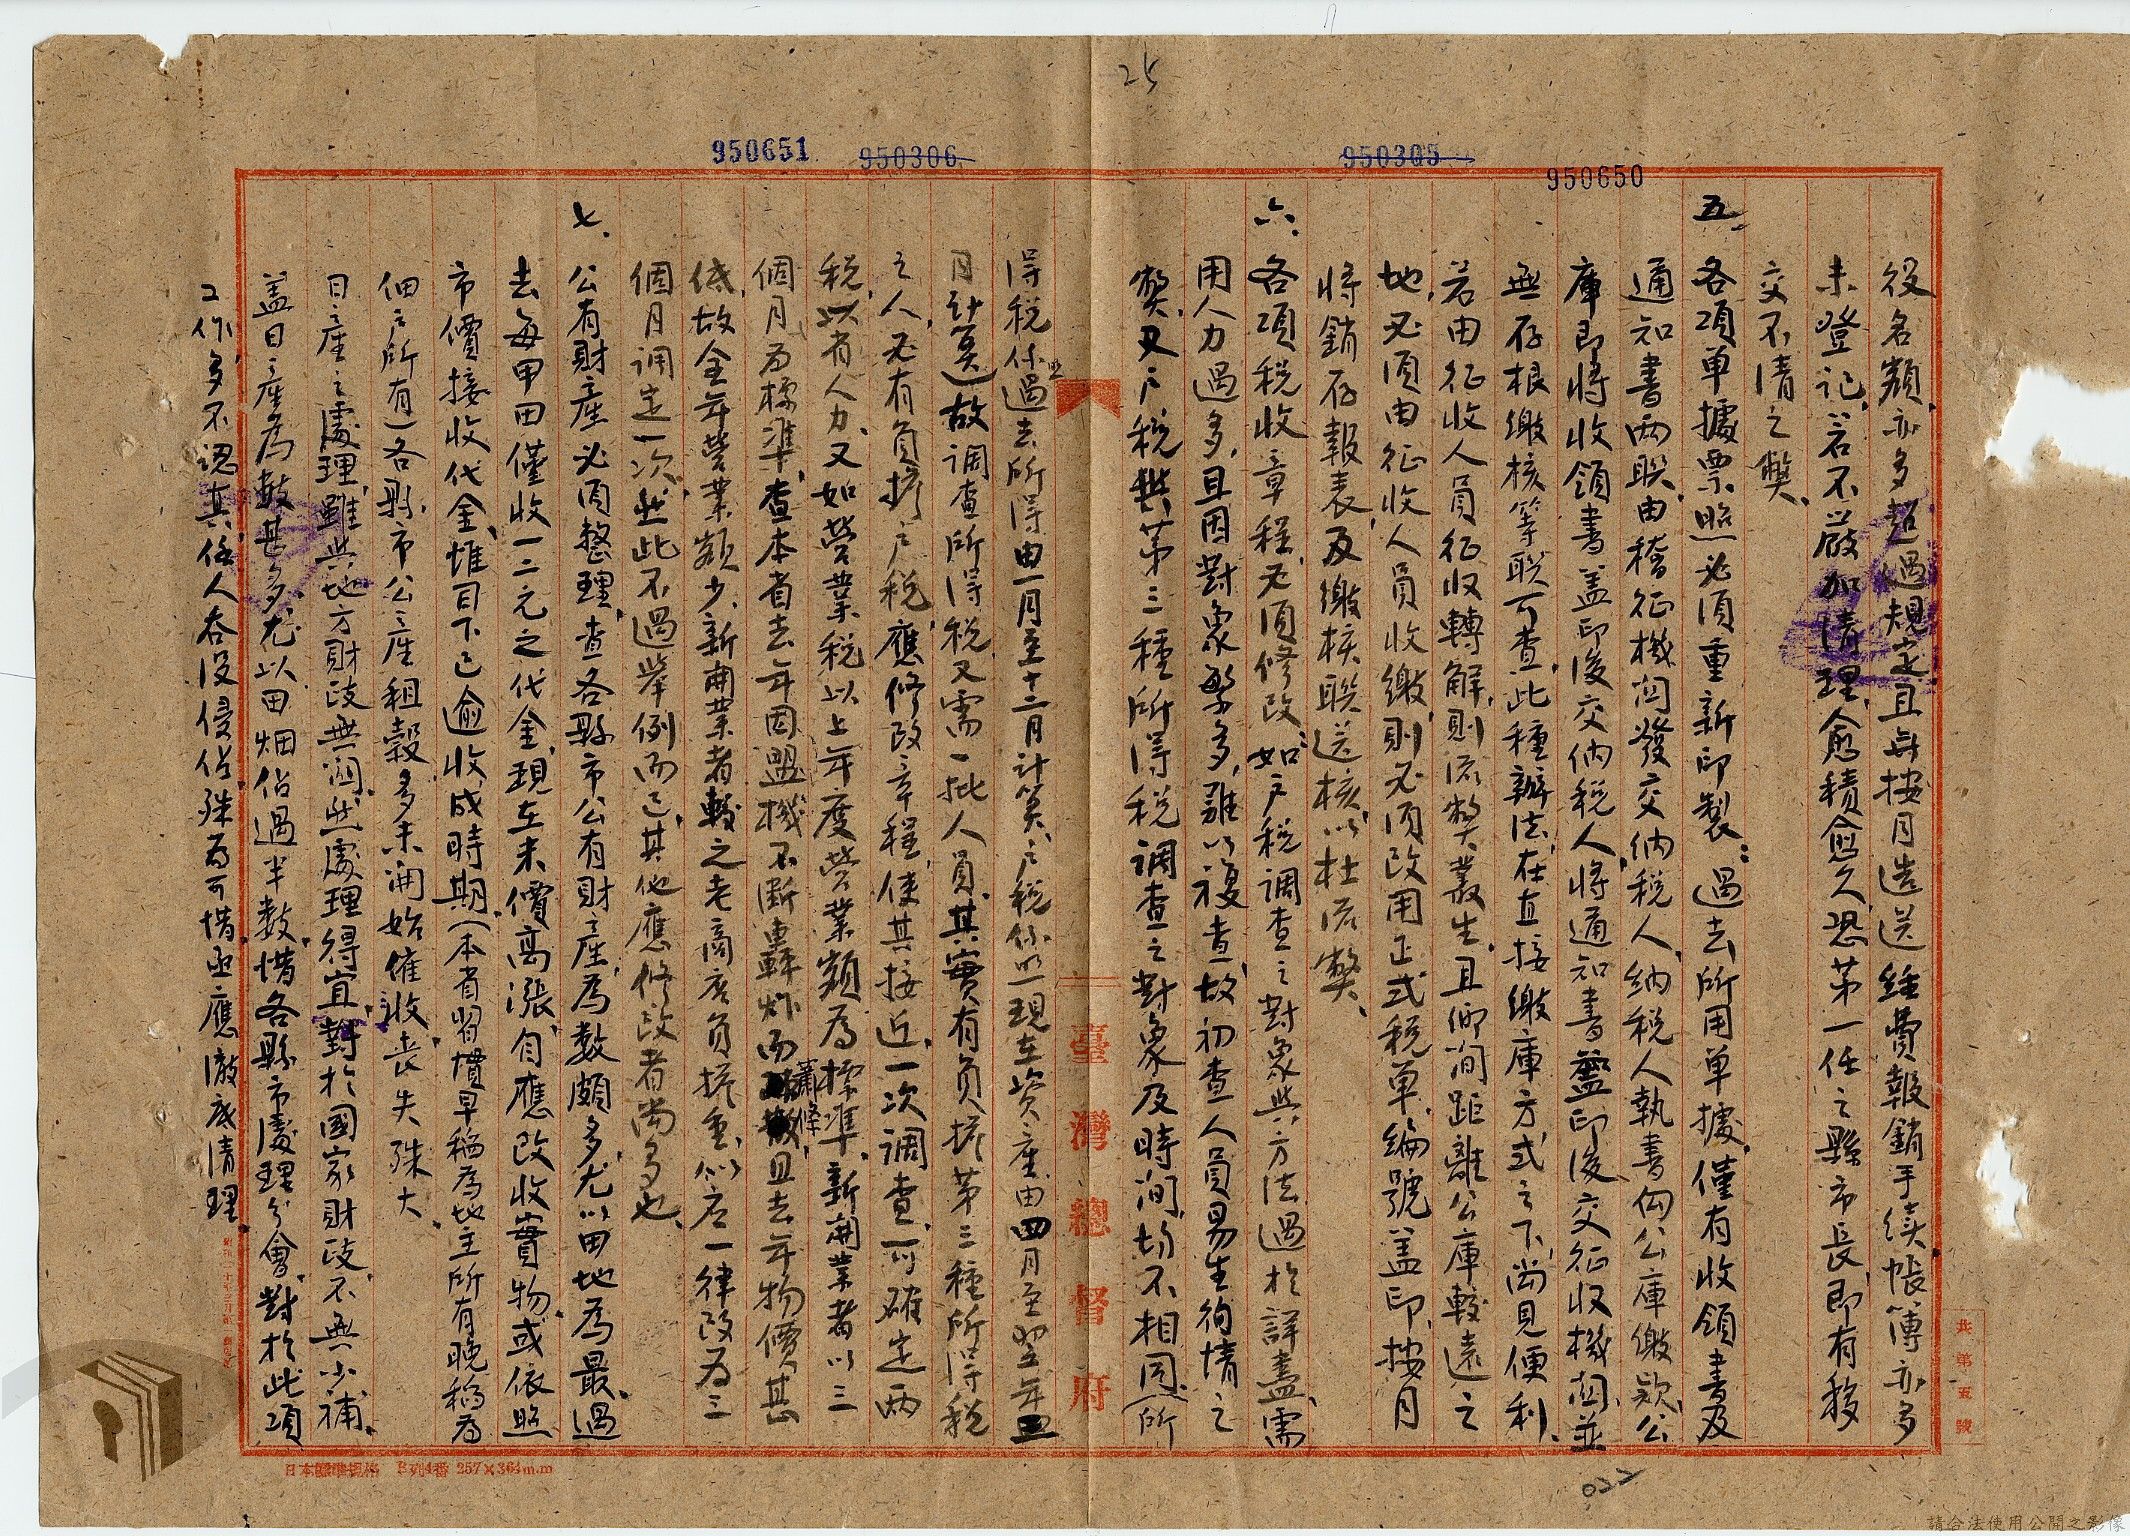 25
950651
950306
950305
950650
役名額,亦多超過規定且無按月造送經費報銷手續帳簿亦多
未登記,若不嚴加清理,愈積愈久,恐第一任之縣市長,即有移
交不清之弊、
五、各項单據票照必須重新印製:過去所用单據,僅有收領書及
通知書兩联,由稽征機関發交納税人,納税人執書向公庫繳款,公
庫即將收領書盖印後交納税人,將通知書盖印後交征收機関,並
無存根繳核等联可查,此種辦法,在直接繳庫方式之下,尚見便利,
若由征收人員征收轉解,則流弊叢生,且鄉間距離公庫較遠之
地,必須由征收人員收繳,則必須改用正式税单,編號盖印,按月
將銷存報表及繳核联送核,以杜流弊、
六、各項税收章程,必須修改:如户税調查之對象與方法過於詳盡,需
用人力過多,且因對象繁多,難以複查,故初查人員易生徇情之
弊,又户税與第三種所得税調查之對象及時间,均不相同,(所
得税係照過去所得由一月至十二月計算,户税係照現在資產由四月至翌年三
月計算)故調查所得税又需一批人員,其實有負担第三種所得税
之人,必有負担户税,應修改章程,使其接近,一次調查,可確定兩
税,以省人力,又如營業税以上年度營業額為標準,新開業者以三
個月為標準,查本省去年因盟機不断轟炸而蕭條,且去年物價甚
低,故全年營業額少,新開業者較之老商店負担重,似应一律改为三
個月調定一次,然此不過舉例而已,其他應修改者尚多也、
七、公有財產必須整理,查各縣市公有財產,為數頗多,尤以田地為最,過
去每甲田僅收一二元之代金,現在米價高漲,自應改收實物,或依照
市價接收代金,惟目下已逾收成時期,(本省習慣早稻為地主所有晚稻為
佃户所有)各縣市公產租穀多未開始催收,丧失殊大、
日產之處理,雖與地方財政無関,然處理得宜,對於國家財政,不無少補,
盖日產為數甚多,尤以田烟佔過半數,惜各縣市處理分會,對於此項
工作,多不認真,任人吞没侵佔,殊为可惜,亟應澈底清理、
臺灣總督府
共第五號
日本標準規格 B列4番 257×364m.m
022
請合法使用公開之影像